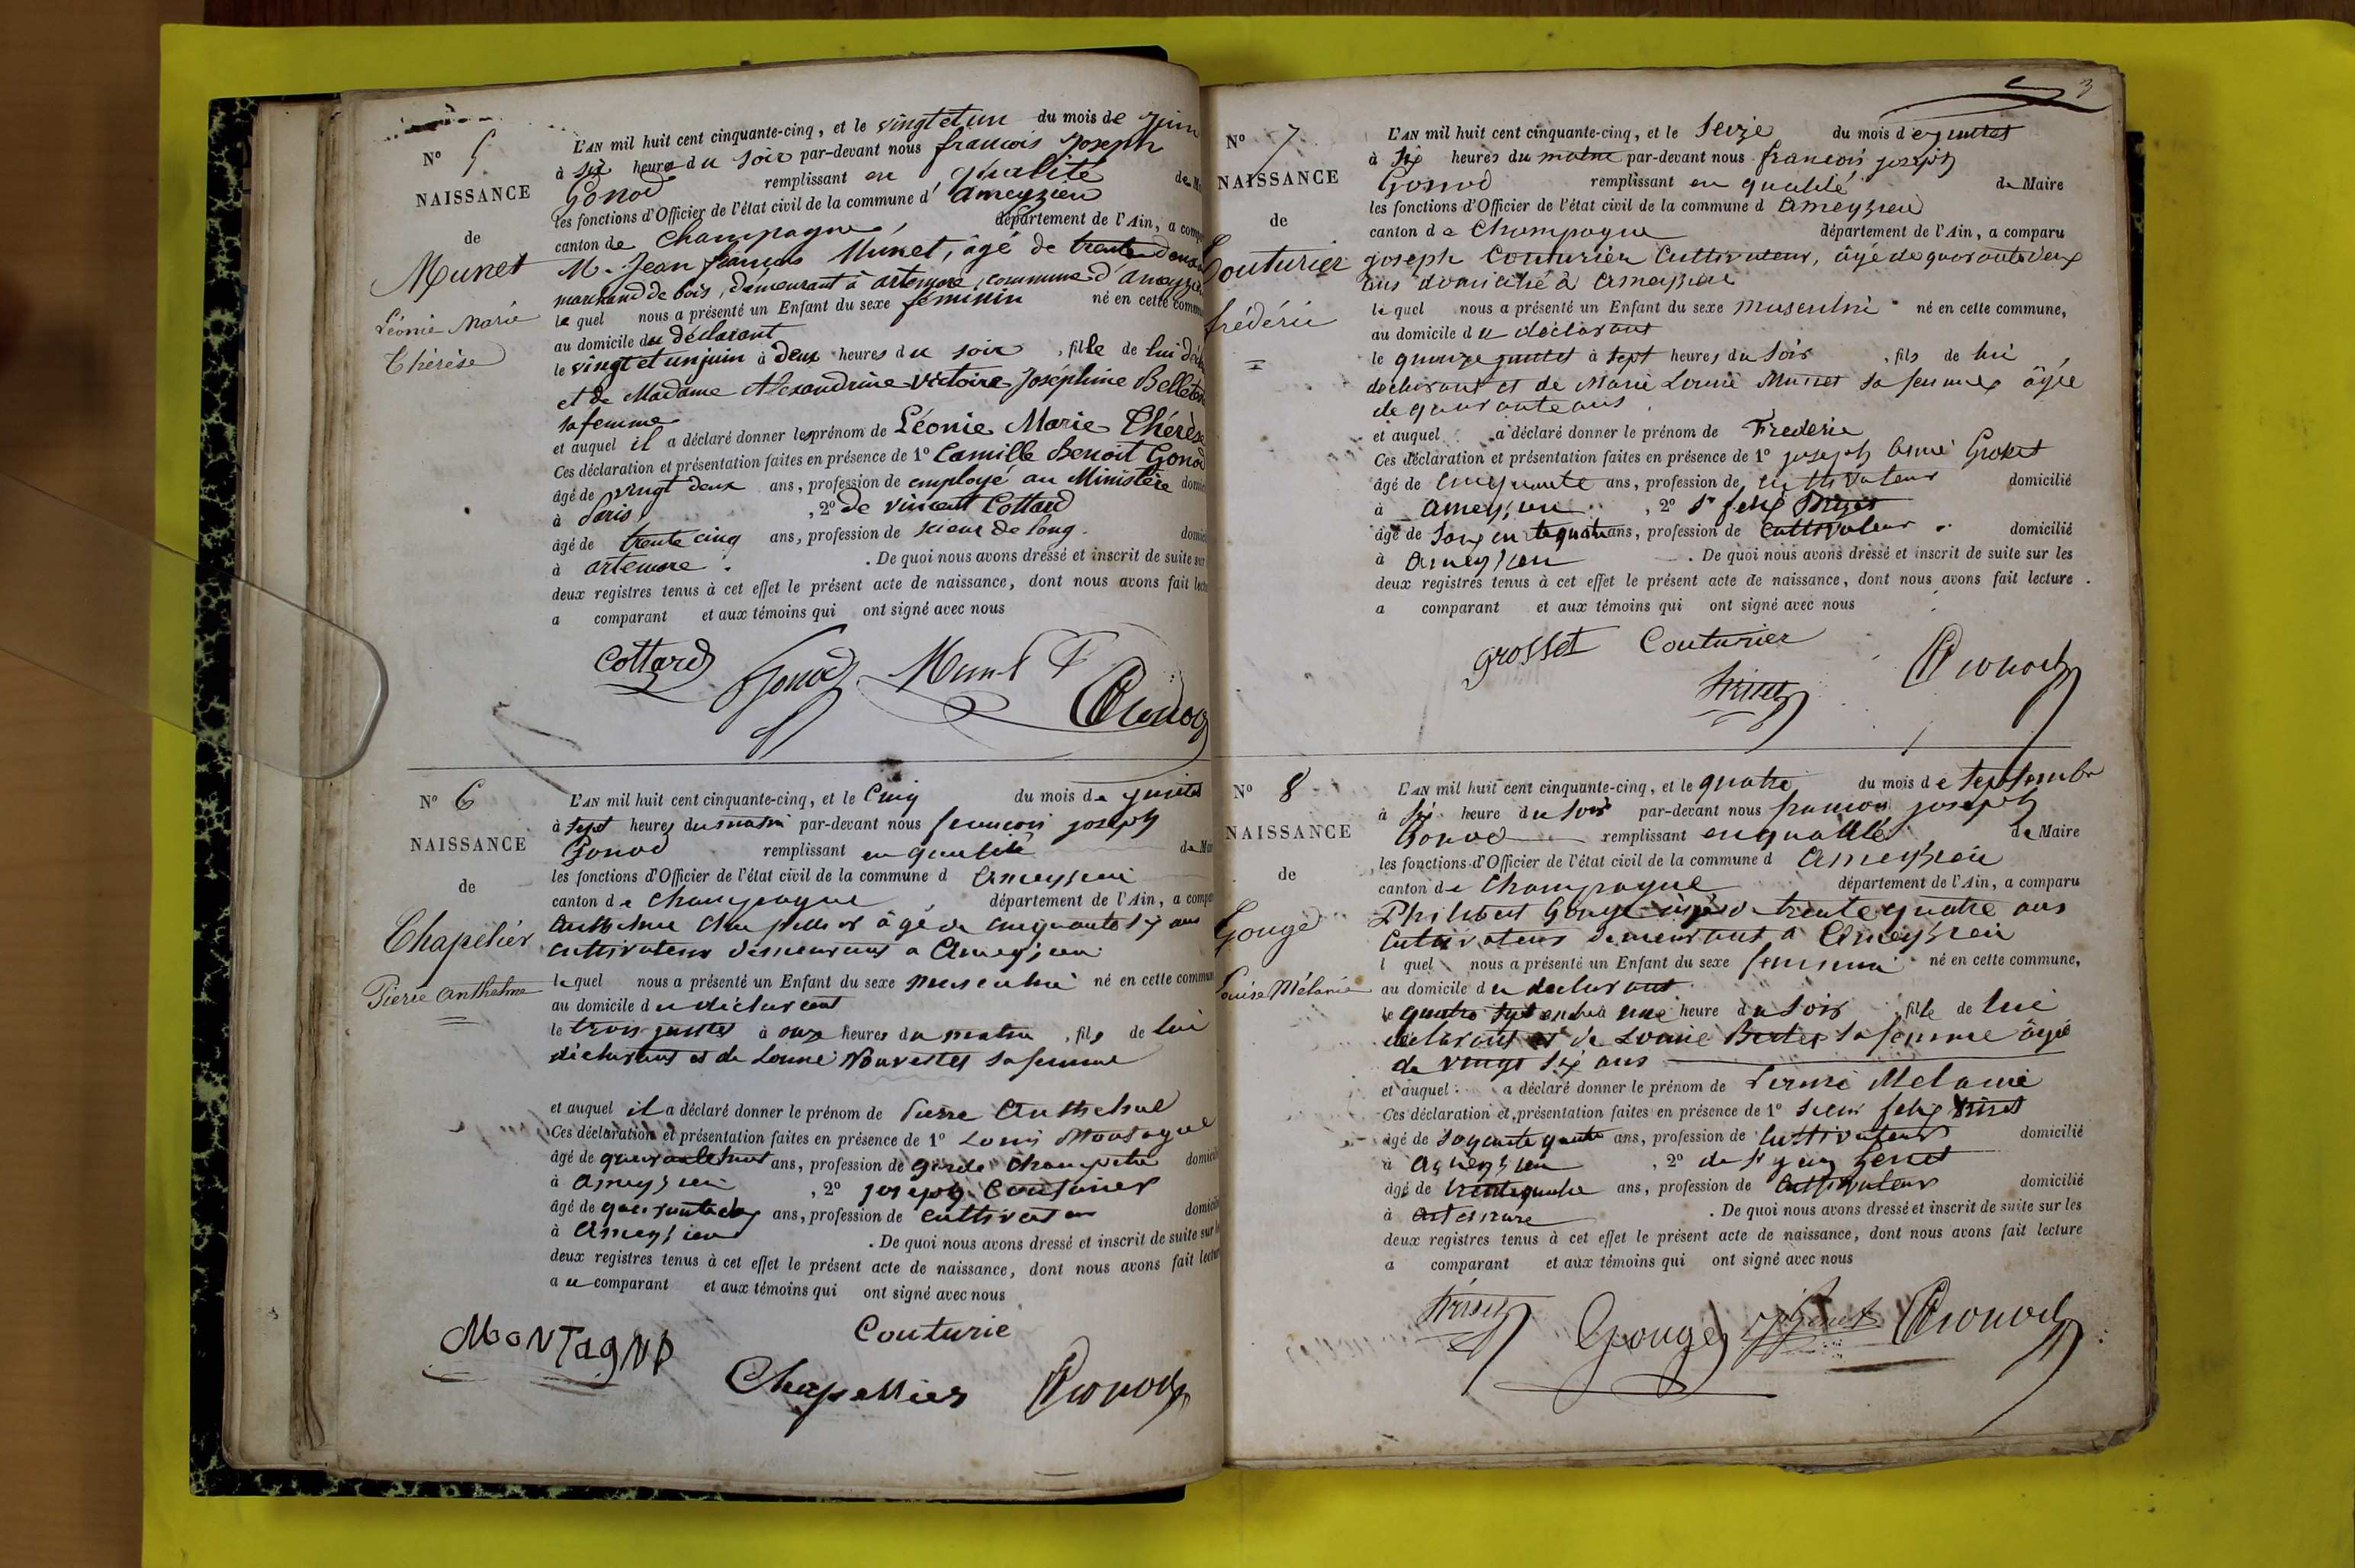 N° 5
NAISSANCE
de
Munet
Léonie Marie
Thérèse
L'AN mil huit cent cinquante-cinq, et le vingt et un du mois de juin
à six heures du soir par-devant nous françois Joseph
Gonod remplissant en qualité de
les fonctions d'Officier de l'état civil de la commune d'Ameyzieu
canton de Champagne, département de l'Ain, a
M. Jean françois Munet, âgé de trente
marchand de bois, demeurant à artemare, commune d'
le quel nous a présenté un Enfant du sexe féminin né en cette
au domicile du déclarant
le vingt et un juin à deux heures du soir, fille de lui
et de Madame Alexandrine Victoire Joséphine
sa femme
et auquel il a déclaré donner les prénom de Léonie Marie Thérèse
Ces déclaration et présentation faites en présence de 1° Camille Benoit Gonod
âgé de vingt deux ans, profession de employé au Ministère
à Paris, 2° de vincent Cottard
âgé de trente cinq ans, profession de scieur de long.
à artemare. . De quoi nous avons dressé et inscrit de suite sur
deux registres tenus à cet effet le présent acte de naissance, dont nous avons fait
a comparant et aux témoins qui ont signé avec nous
Cottard Gonod Munet F Gonod
N° 6
NAISSANCE
de
Chapelier
Pierre Anthelme
L'AN mil huit cent cinquante-cinq, et le Cinq du mois de juillet
à sept heures du matin par-devant nous francois joseph
Gonod remplissant en qualité de
les fonctions d'Officier de l'état civil de la commune d Ameyzieu
canton de Champagne, département de l'Ain, a
Anthelme Chapellier âgé de cinquante six ans
cultivateur demeurant a Ameyzieu
le quel nous a présenté un Enfant du sexe masculin né en cette
au domicile du déclarant
le trois juillet à onze heures du matin, fils de lui
déclarant et de Louise sa femme
et auquel il a déclaré donner le prénom de Pierre Anthelme
Ces déclaration et présentation faites en présence de 1° Louis Montagne
âgé de quarante huit ans, profession de garde champetre
à Ameyzieu, 2° joseph Couturier
âgé de quarante deux ans, profession de cultivateur
à Ameyzieu . De quoi nous avons dressé et inscrit de suite sur
deux registres tenus à cet effet le présent acte de naissance, dont nous avons fait
a u comparant et aux témoins qui ont signé avec nous
MONTAGNE Couturie
Chapellier Gonod
3
N° 7
NAISSANCE
de
Couturier
frédéric
L'AN mil huit cent cinquante-cinq, et le Seize du mois de juillet
à Six heures du matin par-devant nous francois joseph
Gonod remplissant en qualité de Maire
les fonctions d'Officier de l'état civil de la commune d Ameyzieu
canton de Champagne département de l'Ain, a comparu
joseph Couturier Cultivateur, âgé de quarante deux
ans domicilié à Ameyzieu
le quel nous a présenté un Enfant du sexe masculin né en cette commune,
au domicile du déclarant
le quinze juillet à sept heures du soir, fils de lui
declarant et de Marie Louise Munet sa femme âgée
de quarante ans
et auquel a déclaré donner le prénom de Frederic
Ces déclaration et présentation faites en présence de 1° joseph Aimé Grosset
âgé de Cinquante ans, profession de cultivateur domicilié
à Ameyzieu, 2° Sr felix
âgé de ans, profession de Cultivateur domicilié
à Ameyzieu . De quoi nous avons dressé et inscrit de suite sur les
deux registres tenus à cet effet le présent acte de naissance, dont nous avons fait lecture
a comparant et aux témoins qui ont signé avec nous
grosset Couturier
Gonod
N° 8
NAISSANCE
de
Gouge
Louise Mélanie
L'AN mil huit cent cinquante-cinq, et le quatre du mois de Septembre
à Six heure du soir par-devant nous francois joseph
Gonod remplissant en qualité de Maire
les fonctions d'Officier de l'état civil de la commune d Ameyzieu
canton de Champagne département de l'Ain, a comparu
Philibert Gouge âgé de trente quatre ans
Cultivateur demeurant a Ameyzieu
l quel nous a présenté un Enfant du sexe feminin né en cette commune,
au domicile du declarant
le quatre septembre à une heure du soir, fille de lui
déclarant et de Louise sa femme âgée
de vingt six ans
et auquel a déclaré donner le prénom de Louise Melanie
Ces déclaration et présentation faites en présence de 1° Sieur felix
âgé de soixante quatre ans, profession de Cultivateur domicilié
à Ameyzieu, 2° de Sr
âgé de trente quatre ans, profession de Cultivateur domicilié
à Artemare . De quoi nous avons dressé et inscrit de suite sur les
deux registres tenus à cet effet le présent acte de naissance, dont nous avons fait lecture
a comparant et aux témoins qui ont signé avec nous
Gouge Gonod